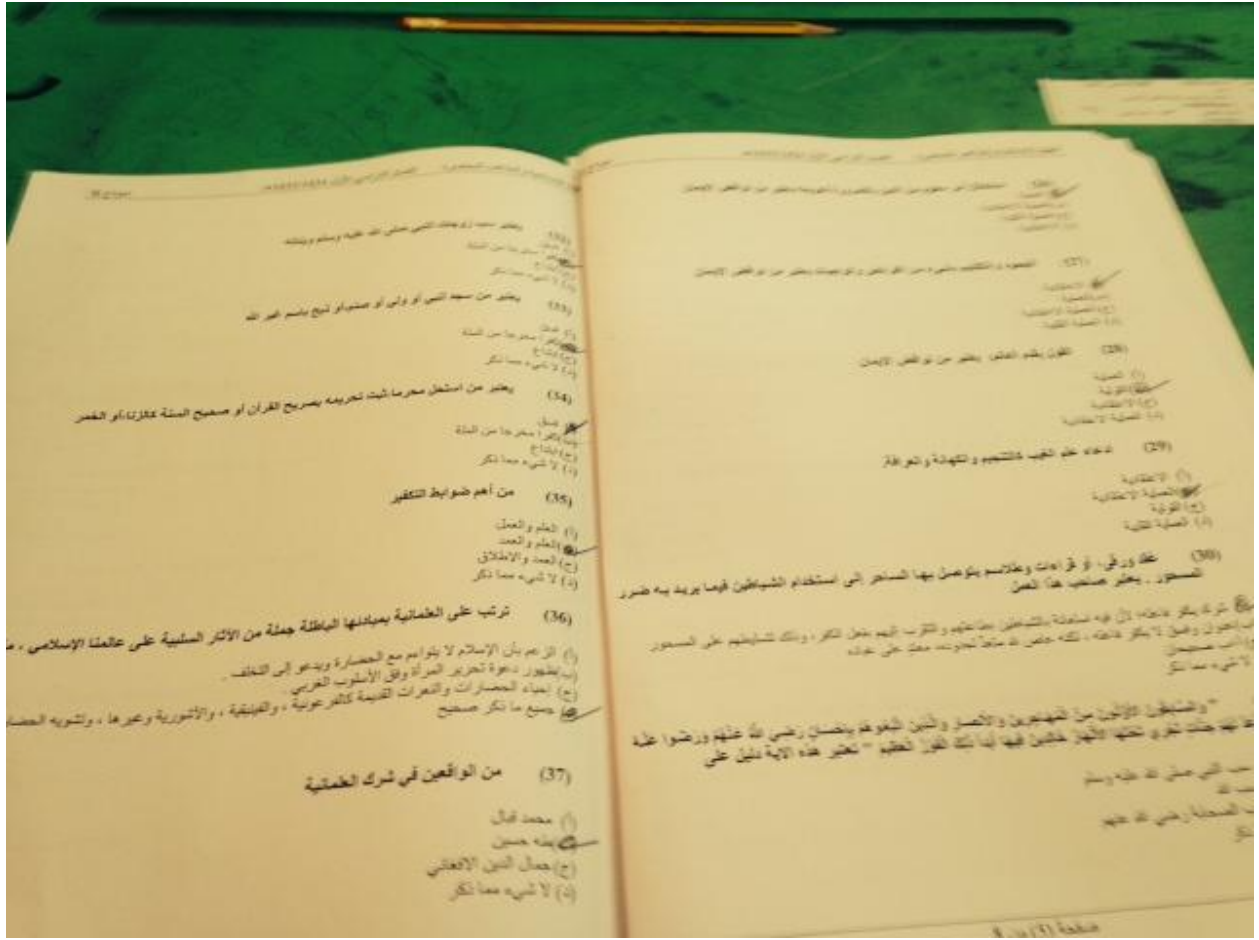 (27) الجحود والتكذيب بشيء من الفرائض والواجبات يعتبر من نواقض الإيمان
أ) الاعتقادية
ب) العملية
ج) العملية الاعتقادية
د) العملية القلبية
(28) القول بقدم العالم يعتبر من نواقض الإيمان
أ) العملية
ب) القولية
ج) الاعتقادية
د) العملية الاعتقادية
(29) ادعاء علم الغيب كالتنجيم والكهانة والعرافة
أ) الاعتقادية
ب) العملية الاعتقادية
ج) القولية
د) العملية القلبية
(30) عقد ورقى، أو قراءات وطلاسم يتوصل بها الساحر إلى استخدام الشياطين فيما يريد به ضرر
المسحور . يعتبر صاحب هذا العمل
شرك يكفر فاعله، لأن فيه استعانة بالشياطين
لا شيء مما ذكر
"والسابقون الأولون من المهاجرين والأنصار والذين اتبعوهم بإحسان رضي الله عنهم ورضوا عنه
لهم جنات تجري تحتها الأنهار خالدين فيها أبدا ذلك الفوز العظيم" تعتبر هذه الآية دليل على
النبي صلى الله عليه وسلم
الصحابة رضي الله عنهم
صفحة (3) من
(32) يعتبر سب زوجات النبي صلى الله عليه وسلم وبناته
أ) فسق
ب) كفرا مخرجا من الملة
ج) ابتداع
د) لا شيء مما ذكر
(33) يعتبر من سجد لنبي أو ولي أو صنم، أو ذبح باسم غير الله
أ) فسق
ب) كفرا مخرجا من الملة
ج) ابتداع
د) لا شيء مما ذكر
(34) يعتبر من استحل محرما ثبت تحريمه بصريح القرآن أو صحيح السنة كالزنا، أو الخمر
أ) فسق
ب) كفرا مخرجا من الملة
ج) ابتداع
د) لا شيء مما ذكر
(35) من أهم ضوابط التكفير
أ) العلم والعمل
ب) العلم والعمد
ج) العمد والاطلاق
د) لا شيء مما ذكر
(36) ترتب على العلمانية بمبادئها الباطلة جملة من الآثار السلبية على عالمنا الإسلامي ،
أ) الزعم بأن الإسلام لا يتواءم مع الحضارة ويدعو إلى التخلف .
ب) ظهور دعوة تحرير المرأة وفق الأسلوب الغربي .
ج) إحياء الحضارات والنعرات القديمة كالفرعونية ، والفينيقية ، والأشورية وغيرها ، وتشويه
د) جميع ما ذكر صحيح
(37) من الواقعين في شرك العلمانية
أ) محمد قبال
ب) طه حسين
ج) جمال الدين الافغاني
د) لا شيء مما ذكر